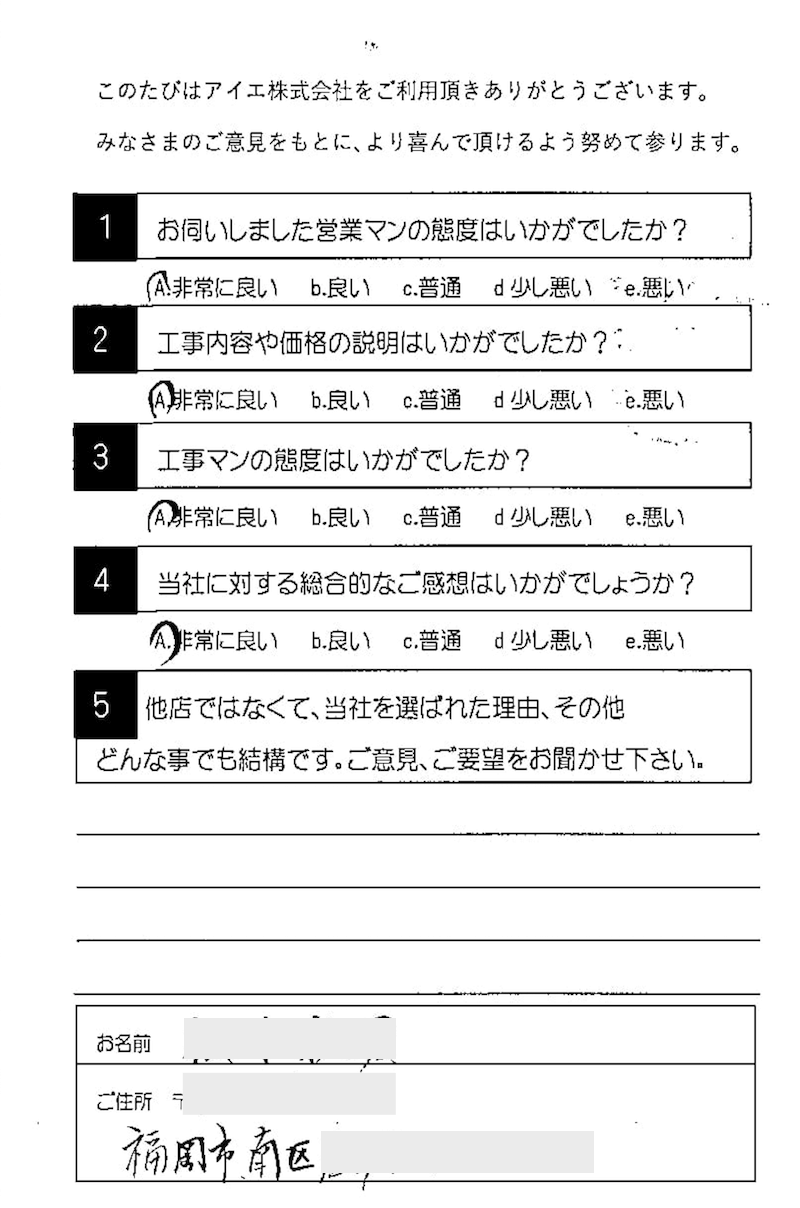 このたびはアイエ株式会社をご利用頂きありがとうございます。
みなさまのご意見をもとに、より喜んで頂けるよう努めて参ります。
1 お伺いしました営業マンの態度はいかがでしたか?
A.非常に良い b.良い c.普通 d 少し悪い e.悪い
2 工事内容や価格の説明はいかがでしたか?
A.非常に良い b.良い c.普通 d 少し悪い e.悪い
3 工事マンの態度はいかがでしたか?
A.非常に良い b.良い c.普通 d 少し悪い e.悪い
4 当社に対する総合的なご感想はいかがでしょうか?
A.非常に良い b.良い c.普通 d 少し悪い e.悪い
5 他店ではなくて、当社を選ばれた理由、その他
どんな事でも結構です。ご意見、ご要望をお聞かせ下さい。
お名前
ご住所 〒
福岡市南区